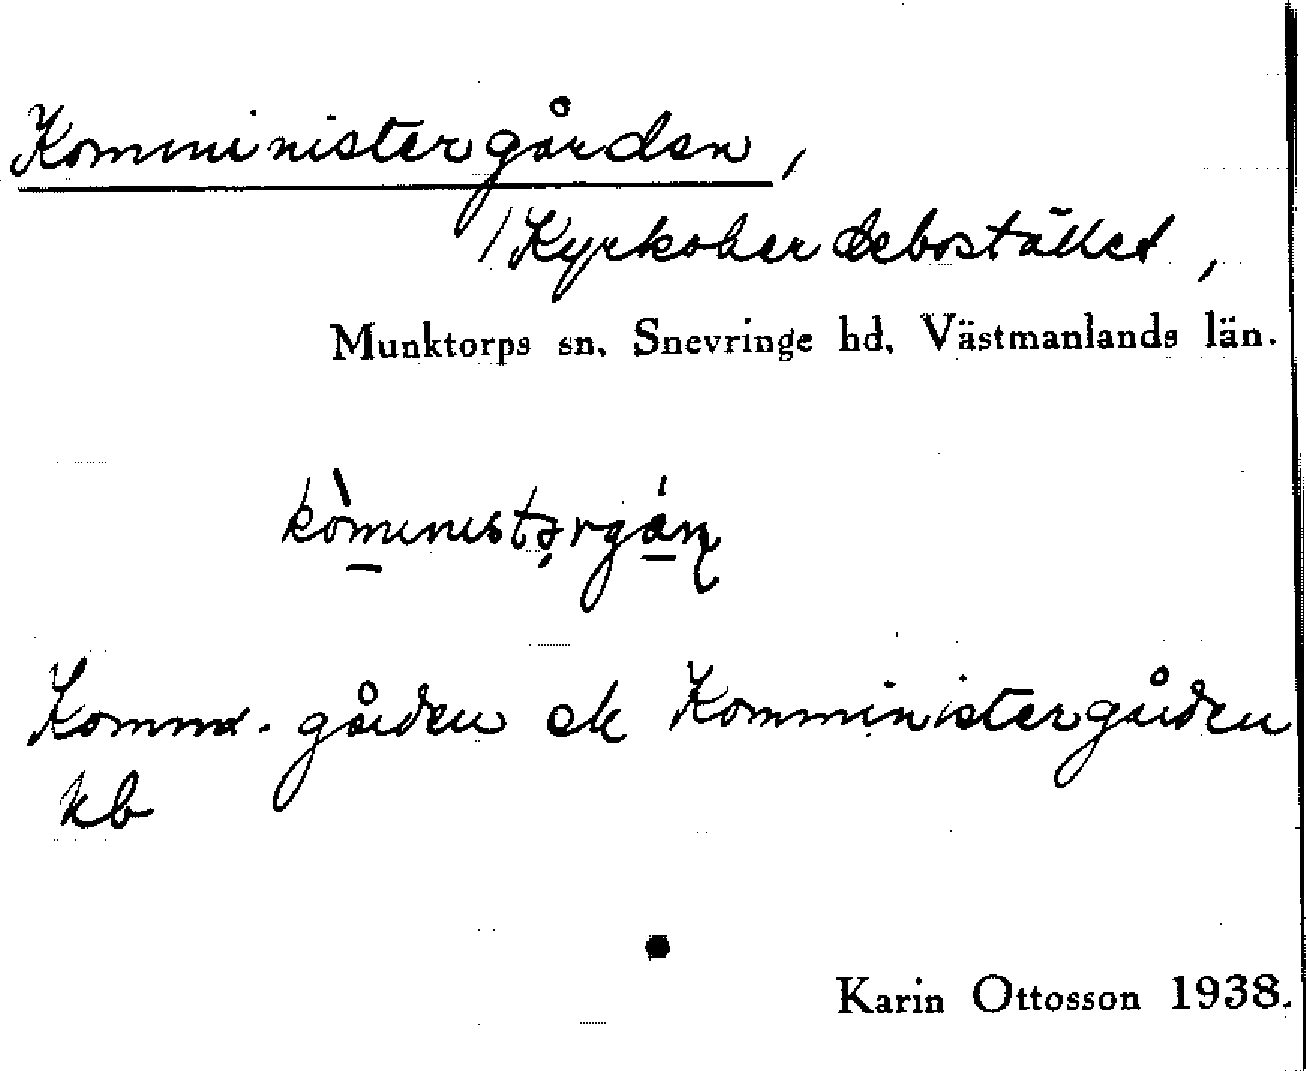 Komministergården,
/Kyrkoherdebostället,
Munktorps sn. Snevringe hd. Västmanlands län.
kòministərgán
Komm.gården ek Komministergården
kb
Karin Ottosson 1938.